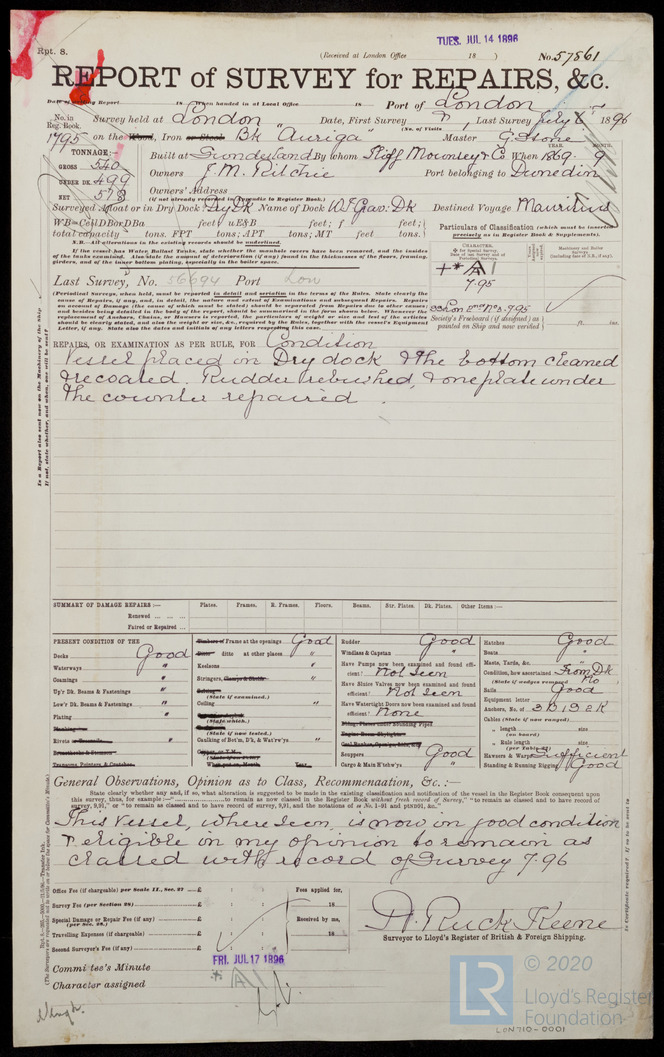 Rpt. 8.
TUES. JUL 14 1896
(Received at London Office 18 ) No. 57861
REPORT of SURVEY for REPAIRS, &c.
Date of writing Report 18 When handed in at Local Office 18 Port of London
No. in Reg. Book. Survey held at London Date, First Survey Last Survey July 18 96
(No. of Visits
1795 on the Wood, Iron or Steel Bk "Auriga" Master G. Stone
TONNAGE:—
GROSS 540
UNDER DK. 499
NET 578
Built at Sunderland By whom Iliff Mounsey & Co When 1869. 9
YEAR. MONTH.
Owners J. M. Ritchie Port belonging to Dunedin
Owners' Address
(if not already recorded in Appendix to Register Book.)
Surveyed Afloat or in Dry Dock? Dry Dk Name of Dock Grav: Dk Destined Voyage Mauritius
WB=CellDBorDBa feet; uE&B feet; f feet;
total capacity tons. FPT tons; APT tons; MT feet tons.
Particulars of Classification (which must be inserted precisely as in Register Book & Supplements).
N.B.—All alterations in the existing records should be underlined.
If the vessel has Water Ballast Tanks, state whether the manhole covers have been removed, and the insides of the tanks examined. Also state the amount of deterioration (if any) found in the thicknesses of the floors, framing, girders, and of the inner plating, especially in the boiler space.
CHARACTER.
A 1
7.95
Last Survey, No. 56694 Port Lon
(Periodical Surveys, when held, must be reported in detail and seriatim in the terms of the Rules. State clearly the cause of Repairs, if any, and, in detail, the nature and extent of Examinations and subsequent Repairs. Repairs on account of Damage (the cause of which must be stated) should be separated from Repairs due to other causes; and besides being detailed in the body of the report, should be summarized in the form shown below.
Society's Freeboard (if assigned) as painted on Ship and now verified ft. ins.
REPAIRS, OR EXAMINATION AS PER RULE, FOR Condition
Vessel placed in Dry dock & the bottom cleaned
& recoated. Rudder rebushed, & one plate under
the counter repaired.
SUMMARY OF DAMAGE REPAIRS:— Plates. Frames. R. Frames. Floors. Beams. Str. Plates. Dk. Plates. Other Items:—
Renewed ... ... ...
Faired or Repaired ...
PRESENT CONDITION OF THE
Decks Good
Waterways "
Coamings "
Up'r Dk. Beams & Fastenings "
Low'r Dk. Beams & Fastenings "
Plating "
Rivets "
Breasthooks & Pointers
Frame at the openings Good
ditto at other places "
Keelsons "
Stringers, "
(State if examined.)
Ceiling "
(State which.)
(State if now tested.)
Caulking of Bot'm, D'k, & Wat'rw'ys "
Rudder Good
Windlass & Capstan "
Have Pumps now been examined and found efficient? Not Seen
Have Sluice Valves now been examined and found efficient? Not Seen
Have Watertight Doors now been examined and found efficient? None
Scuppers Good
Cargo & Main H'tchw'ys "
Hatches Good
Boats "
Masts, Yards, &c. "
Condition, how ascertained From Dk
(State if wedges removed No
Sails Good
Equipment letter
Anchors, No. of 3B 1S 2K
Cables (State if now ranged).
" length size
" Rule length size
(per Table 22)
Hawsers & Warps Sufficient
Standing & Running Rigging Good
General Observations, Opinion as to Class, Recommendation, &c.:—
State clearly whether any, and if so, what alteration is suggested to be made in the existing classification and notification of the vessel in the Register Book consequent upon
this survey, thus, for example:—" to remain as now classed in the Register Book without fresh record of Survey," "to remain as classed and to have record of
survey, 9,91," or "to remain as classed and to have record of survey, 9,91, and the notations of ss No. 1-91 and ptND91, &c."
This Vessel, where seen, is now in good condition
& eligible in my opinion to remain as
classed with record of Survey 7.96
Office Fee (if chargeable) per Scale II., Sec. 27 £ : : Fees applied for,
Survey Fee (per Section 28) £ : : 18
Special Damage or Repair Fee (if any) £ : : Received by me,
(per Sec. 28.)
Travelling Expenses (if chargeable) £ : : 18
Second Surveyor's Fee (if any) £ : :
H. Ruck Keene
Surveyor to Lloyd's Register of British & Foreign Shipping.
FRI. JUL 17 1896
Committee's Minute
Character assigned A1
LR
© 2020
Lloyd's Register
Foundation
LON710-0001